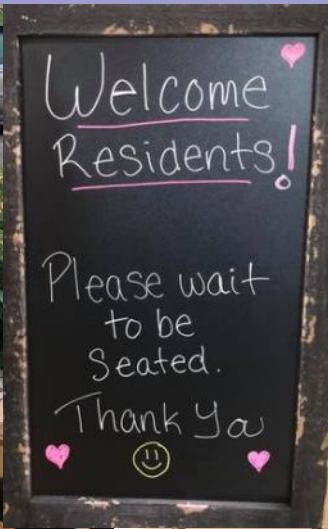 Welcome
Residents!
Please wait
to be
Seated.
Thank You